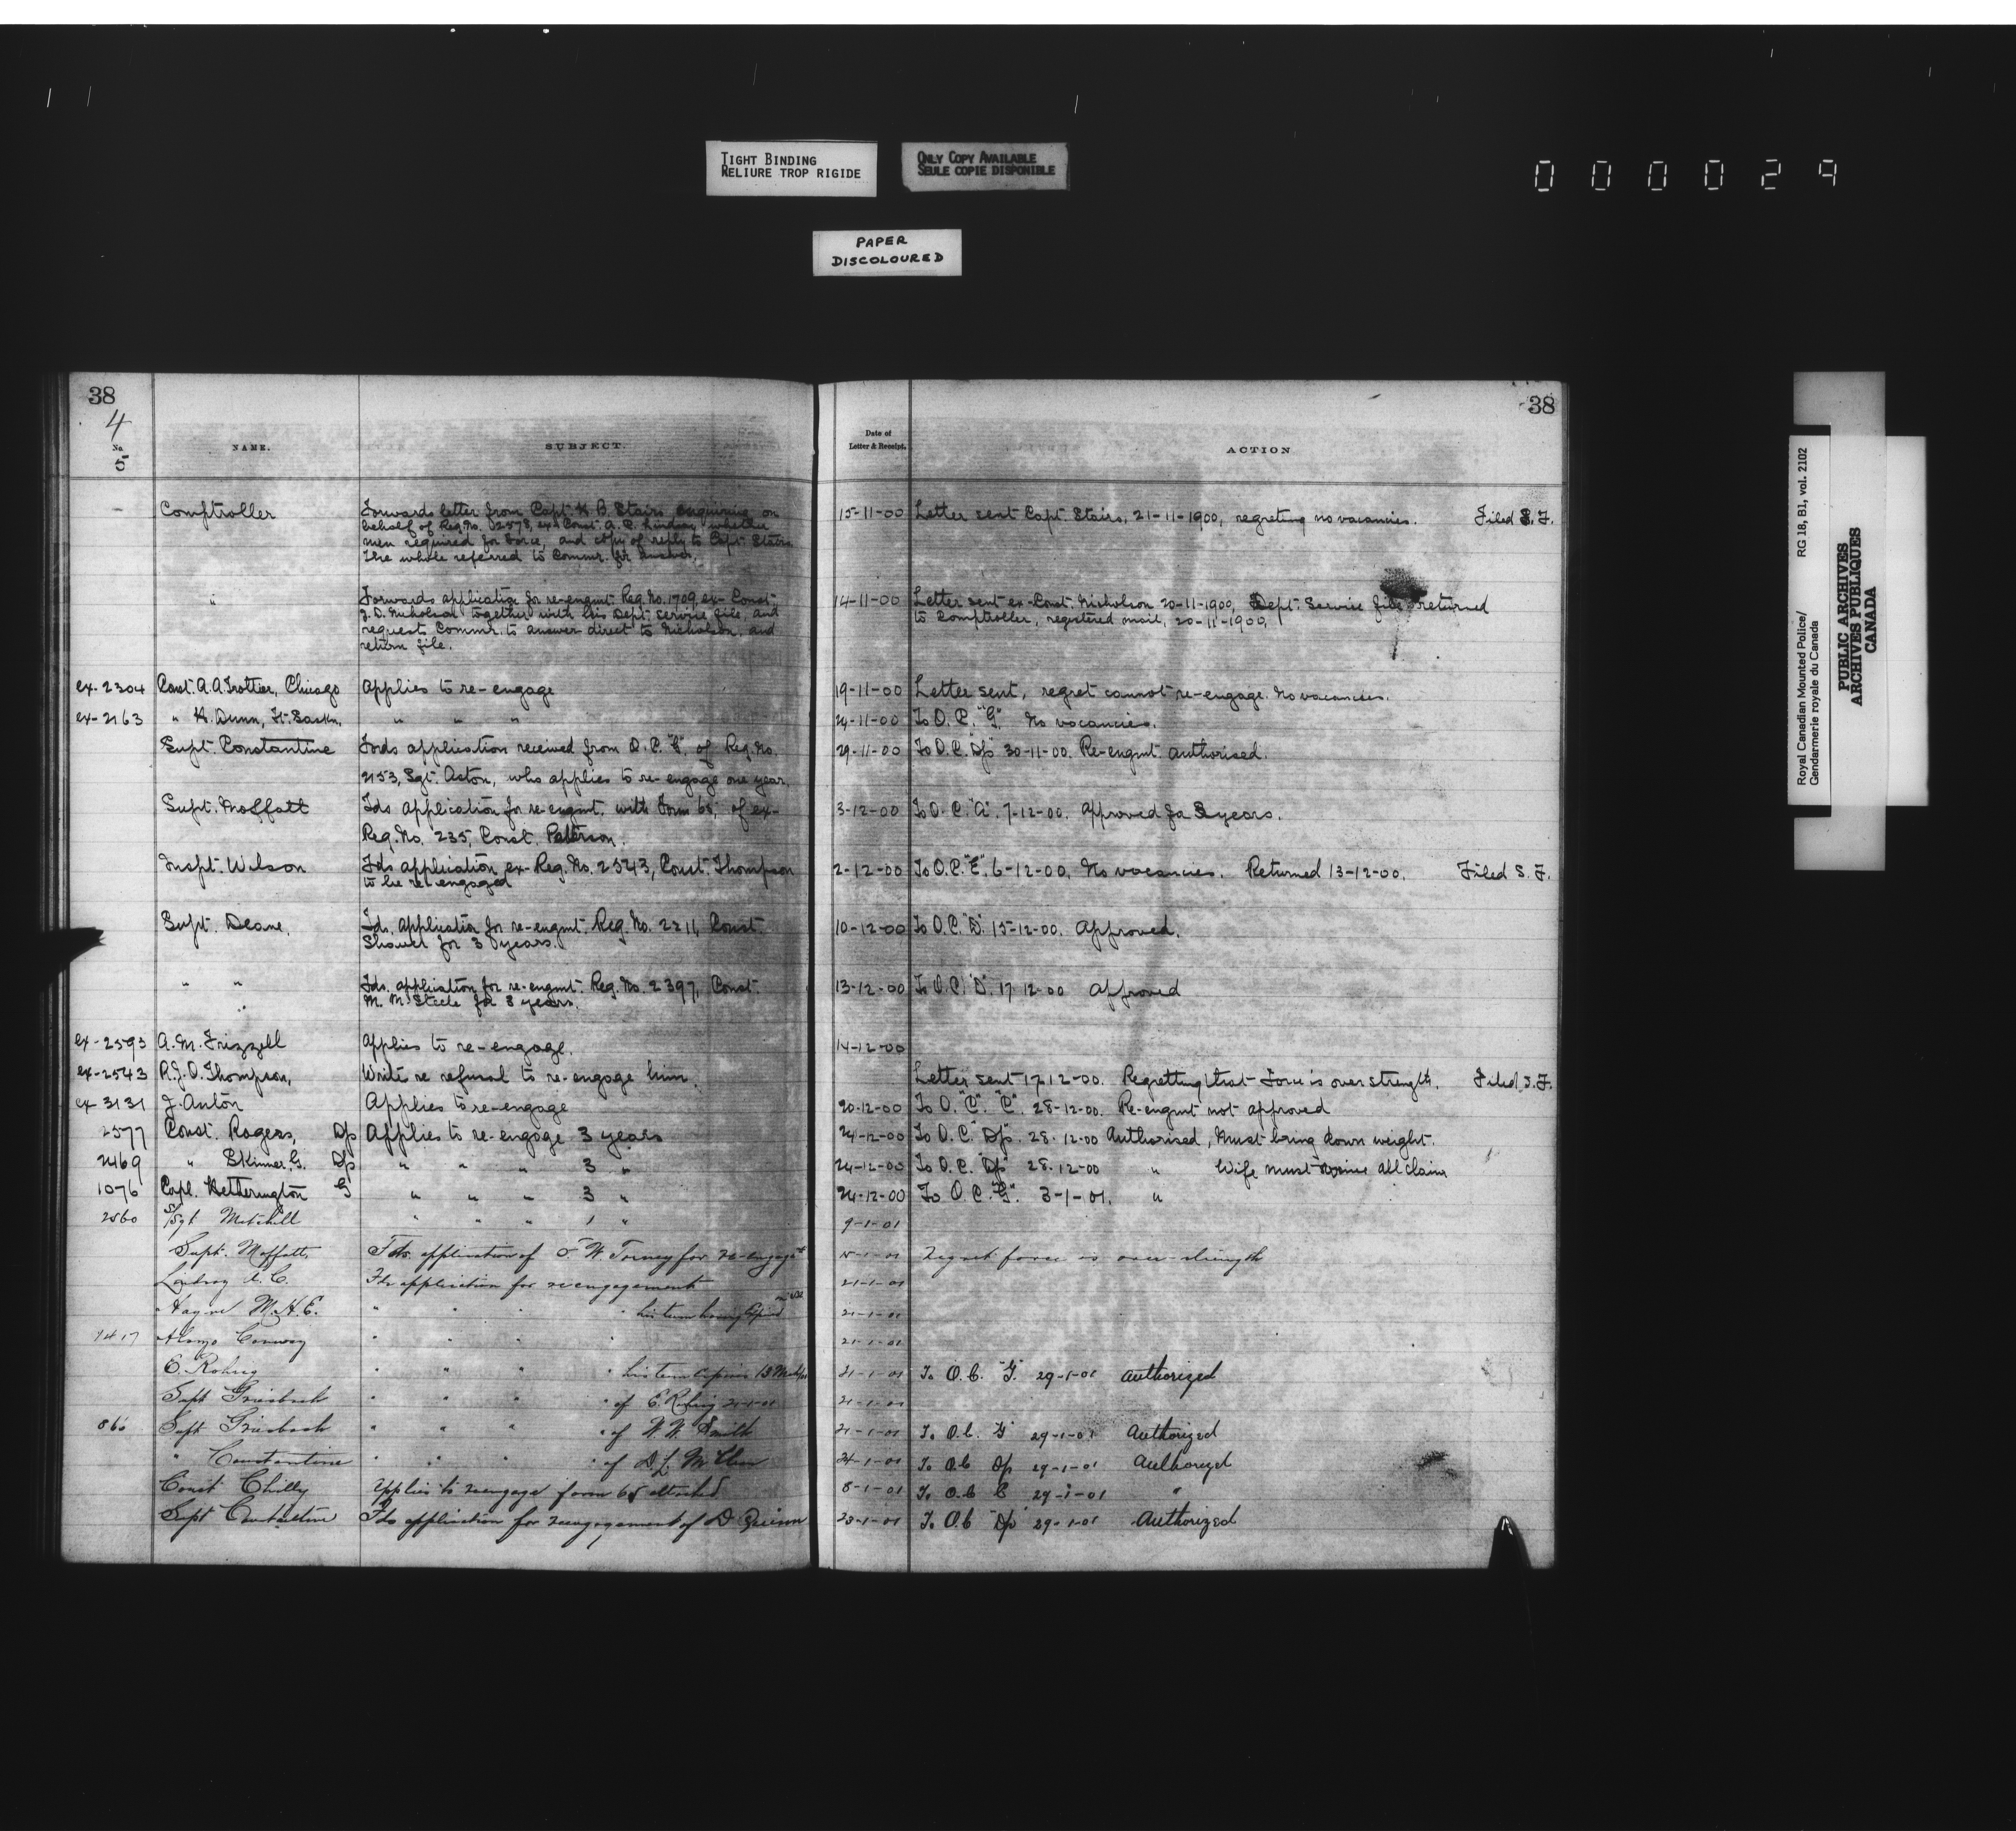 TIGHT BINDING
RELIURE TROP RIGIDE
ONLY COPY AVAILABLE
SEULE COPIE DISPONIBLE
000029
PAPER
DISCOLOURED
38
4
No.
5
NAME.
SUBJECT.
Date of
Letter & Receipt.
ACTION
38
Comptroller Forwards letter from Capt. H. B. Stairs enquiring on 15-11-00 Letter sent Capt. Stairs, 21-11-1900, regreting no vacancies. Filed S.F.
behalf of Reg. No. 2578, ex-Const. A. C. Lindsay whether
men required for Force, and copy of reply to Capt. Stairs.
The whole referred to Commr. for answer.
" Forwards application for re-engmt. Reg. No. 1709, ex-Const. 14-11-00 Letter sent ex-Const. Nicholson 20-11-1900, Dept. Service file returned
J. D. Nicholson together with his Dept. service file, and to Comptroller, registered mail, 20-11-1900.
requests Commr. to answer direct to Nicholson, and
return file.
ex-2304 Const. A. A. Trottier, Chicago Applies to re-engage 19-11-00 Letter sent, regret cannot re-engage. No vacancies.
ex-2163 " H. Dunn, Ft. Saskn. " " " 24-11-00 To O.C. "G" No vacancies.
Supt. Constantine Fwds application received from O.C. of Reg. No. 29-11-00 To O.C. "Dp" 30-11-00. Re-engmt authorised.
2153, Sgt. Acton, who applies to re-engage one year.
Supt. Moffatt Fds application for re-engmt. with Form 65, of ex- 3-12-00 To O.C. "A". 7-12-00. Approved for 3 years.
Reg. No. 235, Const. Patterson.
Inspt. Wilson Fds application ex-Reg. No. 2543, Const. Thompson 2-12-00 To O.C. "E". 6-12-00, No vacancies. Returned 13-12-00. Filed S.F.
to be re-engaged
Supt. Deane. Fds. application for re-engmt. Reg. No. 2211, Const. 10-12-00 To O.C. "D" 15-12-00. Approved.
for 3 years.
" " Fds. application for re-engmt. Reg. No. 2397, Const. 13-12-00 To O.C. "D". 17-12-00 Approved
M. M. Steele for 3 years.
ex-2593 A. M. Frizzell Applies to re-engage. 14-12-00
ex-2543 R. J. O. Thompson, Write re refusal to re-engage him. Letter sent 17-12-00. Regretting that Force is over strength. Filed S.F.
ex 3131 J. Anton Applies to re-engage 20-12-00 To O. "C". "C". 28-12-00. Re-engmt not approved
2577 Const. Rogers, Dp Applies to re-engage 3 years 24-12-00 To O.C. "Dp". 28-12-00 Authorised, Must bring down weight.
2469 " Skinner, G. Dp " " " 3 " 24-12-00 To O.C. "Dp" 28-12-00 " Wife must all claim
1076 Corpl. Hetherington G " " " 3 " 24-12-00 To O.C. "G". 3-1-01. "
2560 S/Sgt Mitchell " " " 1 " 9-1-01
Supt. Moffatt Fds application of W. Torney for re-engaget 15-1-01 Regret force is over-strength
Lindsay A. C. Fds application for reengagement 21-1-01
Hayne M. H. E. " " " his term having expired 21-1-01
1417 Alonzo Conway " " " 21-1-01
E. " " " his term expires 13 21-1-01 To O.C. "G". 29-1-01 Authorized
Supt Griesbach " " " of E. 21-1-01 21-1-01
866 Supt Griesbach " " " of W. W. Smith 21-1-01 To O.C. "G" 29-1-01 Authorized
" Constantine " " " of D. L. 24-1-01 To O.C. Dp 29-1-01 Authorized
Const Chilly Applies to reengage form 65 attached 8-1-01 To O.C. 29-1-01 "
Supt Constantine Fds application for reengagement of D Quinn 23-1-01 To O.C. "Dp" 29-1-01 Authorized
Royal Canadian Mounted Police/ RG 18, B1, vol. 2102
Gendarmerie royale du Canada
PUBLIC ARCHIVES
ARCHIVES PUBLIQUES
CANADA